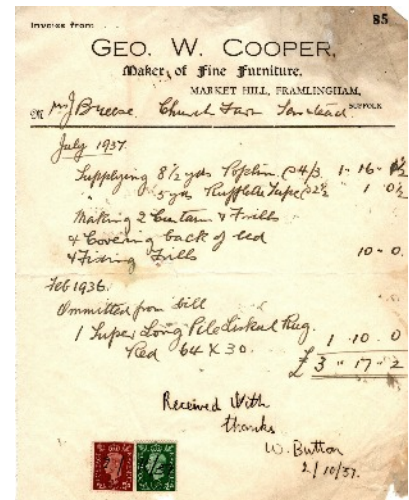 Invoice from
85
GEO. W. COOPER,
Maker of Fine Furniture.
MARKET HILL, FRAMLINGHAM,
SUFFOLK
M Mrs J Breese. Church Farm
July 1937.
Supplying 8 1/2 yds Poplin @ 4/3. 1-16-1 1/2
" 5 yds Rufflette Tape @ 2 1/2 " 1 0 1/2
Making 2 Curtains & Frills
& Covering back of bed
& Fixing Frills 10-0.
Feb 1936.
Ommitted from bill
1 Super Long Pile Rug. 1 10 0
Red 64 X 30.
£ 3 " 17 - 2
Received With
thanks
W. Button
2/10/37.